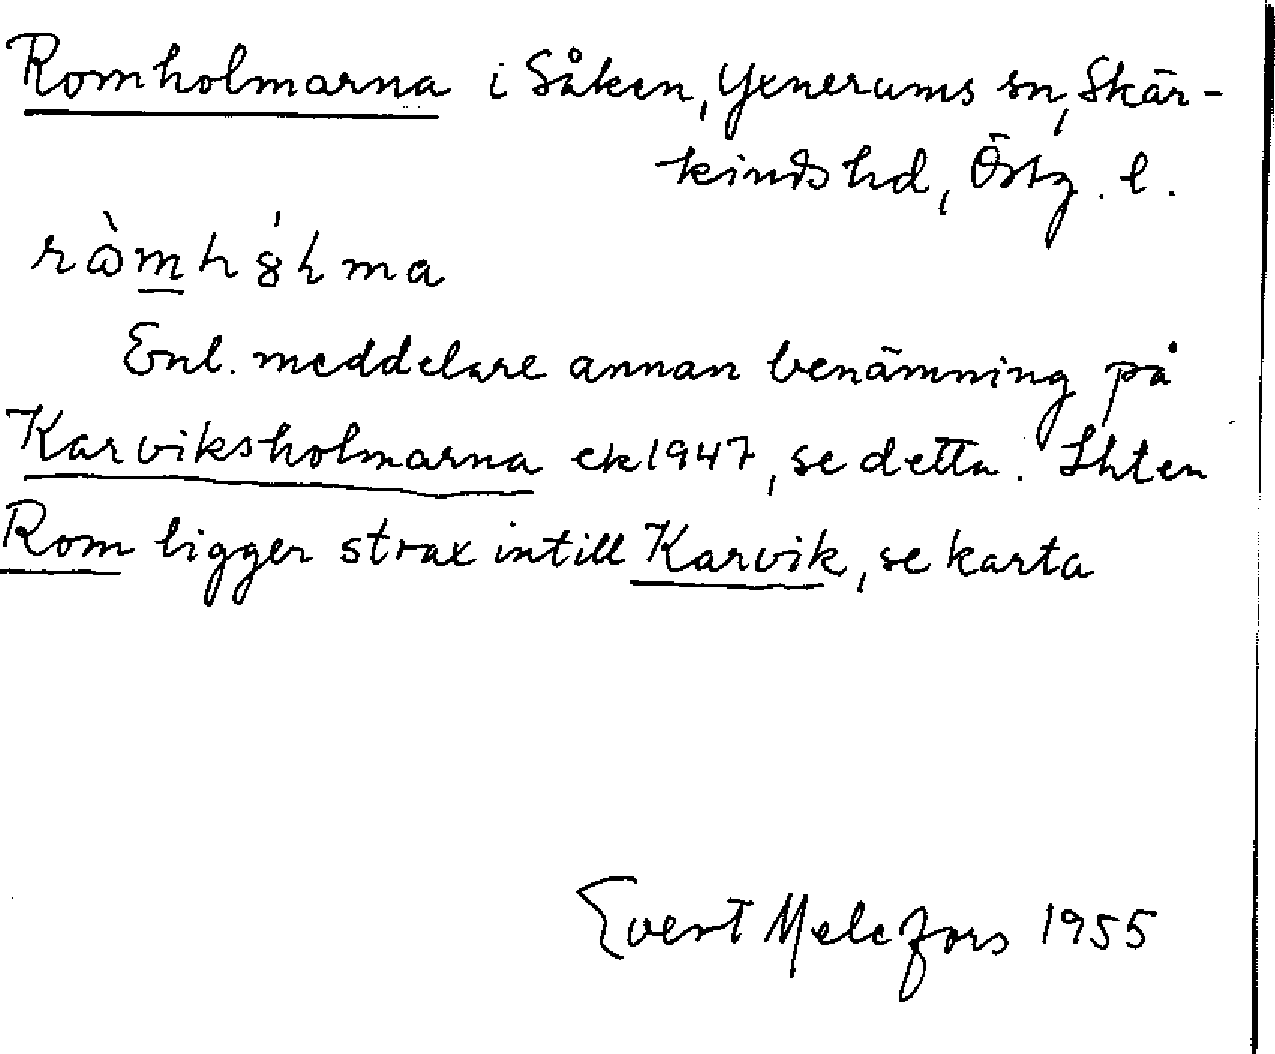 Romholmarna i Såken, Yxnerums sn, Skär-
kinds hd, Östg. l.
Enl. meddelare annan benämning på
Karviksholmarna ek 1947, se detta. Lhten
Rom ligger strax intill Karvik, se karta
Evert Melefors 1955